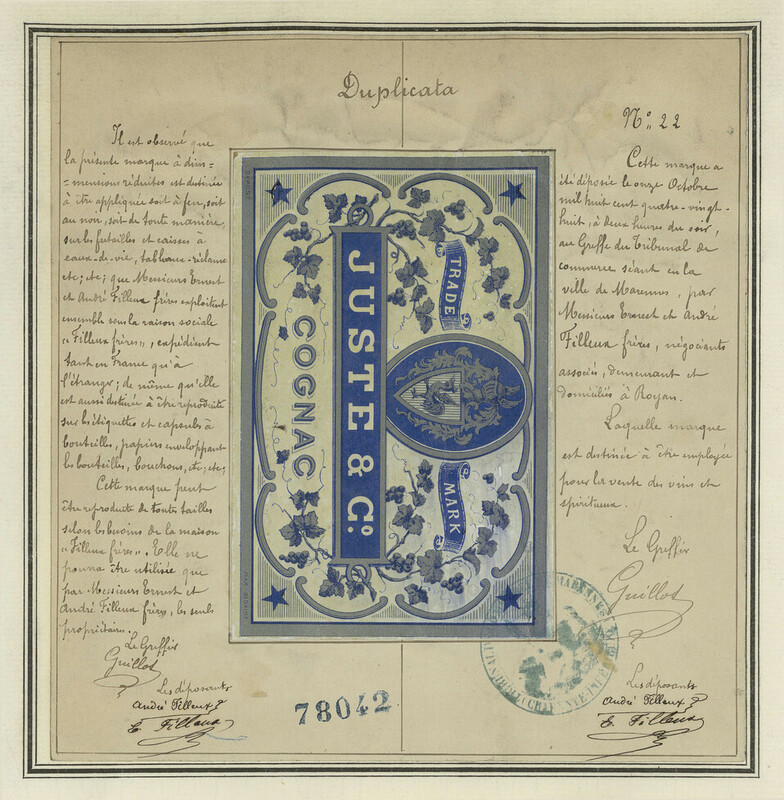 Duplicata
Il est observé que
la présente marque à dim=
=mensions réduites est destinée
à être appliquée soit à feu, soit
au noir, soit de toute manière,
sur les futailles et caisses à
eaux-de-vie, tableaux-réclame
etc; etc; que Messieurs Ernest
et André Filleux frères exploitent
ensemble sous la raison sociale
"Filleux frères", expédient
tant en France qu'à
l'étranger; de même qu'elle
est aussi destinée à être reproduite
sur les étiquettes et capsules à
bouteilles, papiers enveloppant
les bouteilles, bouchons, etc; etc;
Cette marque peut
être reproduite de toutes tailles
selon les besoins de la maison
"Filleux frères". Elle ne
pourra être utilisée que
par Messieurs Ernest et
André Filleux frères, les seuls
propriétaires.
Le Greffier
Guillot
Les déposants
André Filleux
E. Filleux
TRADE
MARK
JUSTE & Cº.
COGNAC
78042
Nº 22
Cette marque a
été déposée le onze Octobre
mil huit cent quatre-vingt-
huit, à deux heures du soir,
au Greffe du Tribunal de
commerce séant en la
ville de Marennes, par
Messieurs Ernest et André
Filleux frères, négociants
associés, demeurant et
domiciliés à Royan.
Laquelle marque
est destinée à être employée
pour la vente des vins et
spiritueux.
Le Greffier
Guillot
Les déposants
André Filleux
E. Filleux